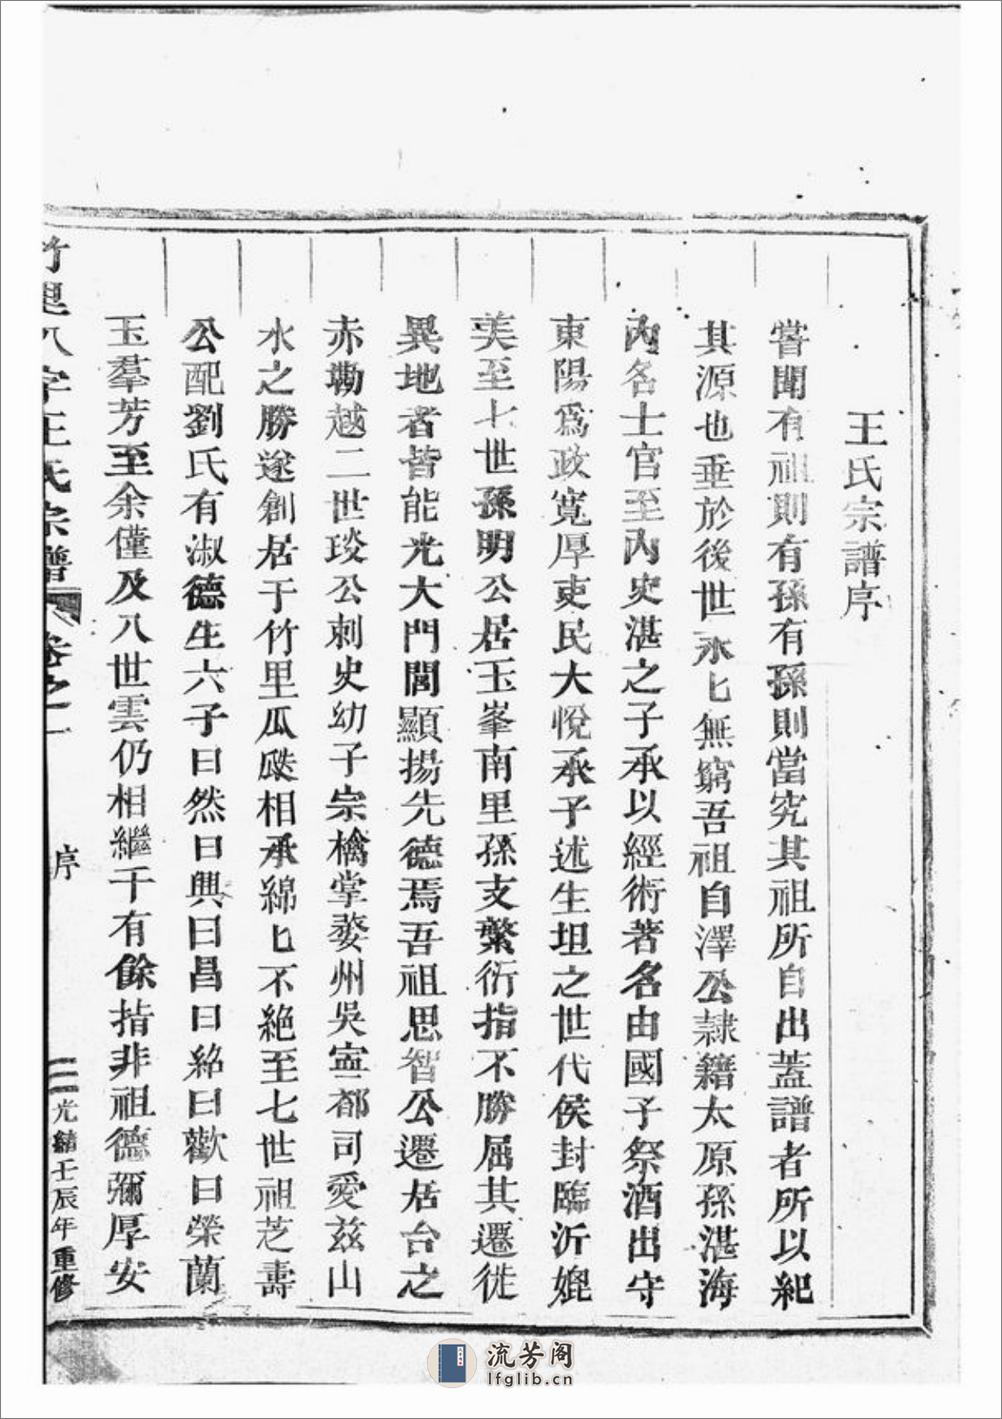 王氏宗譜序
嘗聞有祖則有孫有孫則當究其祖所自出蓋譜者所以紀
其源也垂於後世永匕無窮吾祖自澤公隷籍太原孫湛海
內名士官至內史湛之子承以經術著名由國子祭酒出守
東陽爲政寬厚吏民大悅承子述生坦之世代侯封臨沂媲
美至七世孫明公居玉峯南里孫支繁衍指不勝屈其遷徙
異地者皆能光大門閭顯揚先德焉吾祖思智公遷居台之
赤墈越二世琰公刺史幼子宗檎掌婺州吳寍都司愛兹山
水之勝遂創居于竹里瓜瓞相承綿匕不絶至七世祖芝壽
公配劉氏有淑德生六子曰然曰興曰昌曰綌曰歡曰榮蘭
玉羣芳至余僅及八世雲仍相繼千有餘指非祖德彌厚安
竹里八字王氏宗譜 卷之一 序 二 光緒壬辰年重修
流芳阁
lfglib.cn